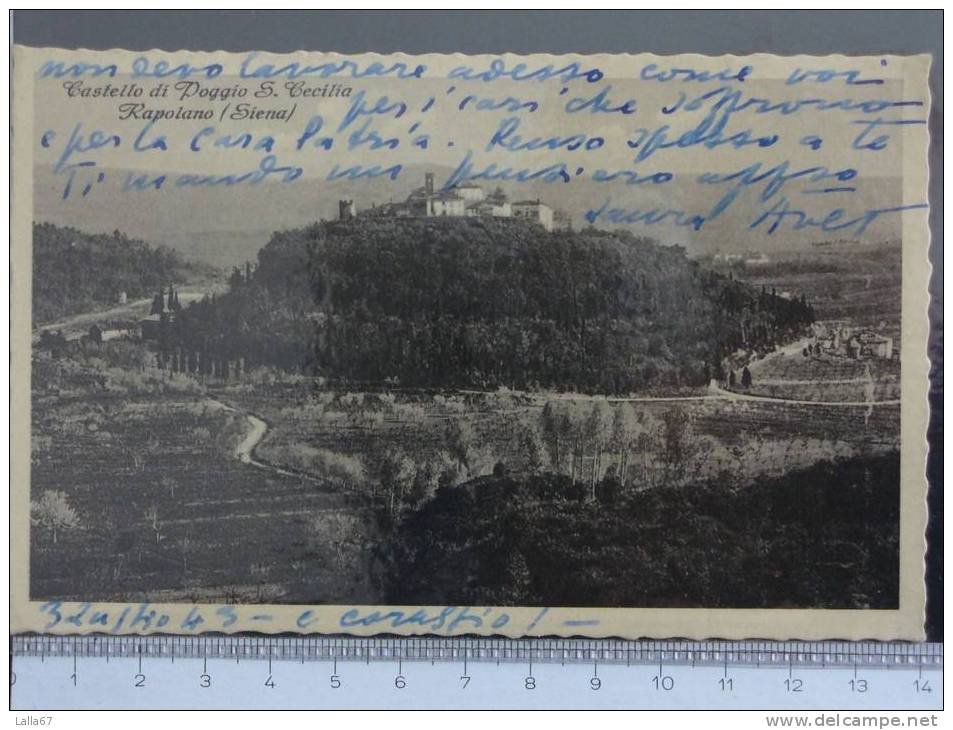 non devo lavorare adesso come voi
Castello di Poggio S. Cecilia
Rapolano (Siena)
per i cari che soffrono
e per la cara Patria. Penso spesso a te
Ti mando un pensiero affso
Laura
3 Luglio 43 - e coraggio! -
0 1 2 3 4 5 6 7 8 9 10 11 12 13 14
Lalla67
www.delcampe.net